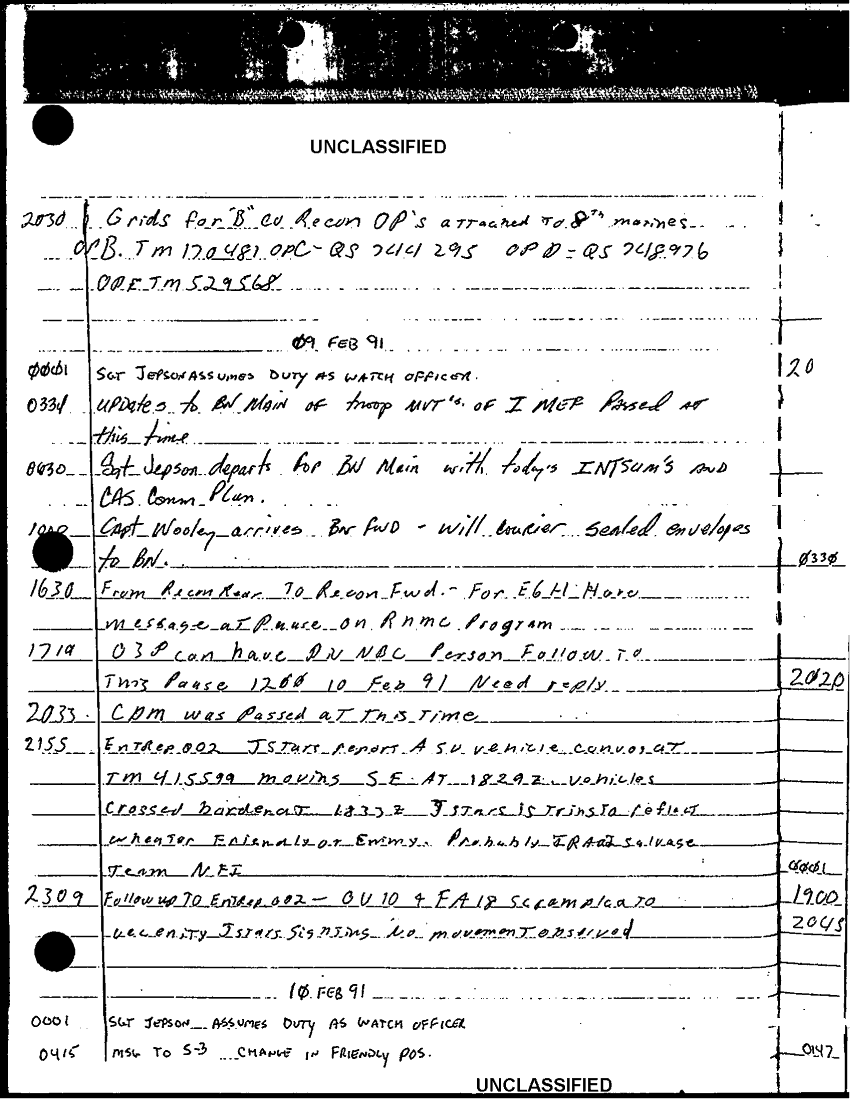 UNCLASSIFIED
2030 Grids for "B" co Recon OP's attached to 8th marines
OPB. TM 170481 OPC - QS 744 295 OP D = QS 748976
OPE TM 529568
09 FEB 91
0001 SGT JEPSON ASSUMES DUTY AS WATCH OFFICER. 20
0334 UPDates to BN MAIN of troop MVT's. of I MEF Passed AT
this time
0630 Sgt Jepson departs for BN Main with today's INTSUM'S AND
CAS Comm Plan.
Capt Wooley arrives BN FWD - will courier sealed envelopes
to BN. 0330
1630 From Recon Rear To Recon Fwd. - For E6 H. Hare
message at Pause on Rnmc Program
1719 03P can have NBC Person Follow TO
This Pause 1200 10 Feb 91 Need reply 2020
2033. CDM was Passed at This Time
2155 EntRep 002 JStars report A 50 vehicle convoy at
TM 415599 moving S.E. AT 1829Z. vehicles
Crossed border at 1833Z Jstars is trying to reflect
wheater Friendly or Enimy. Probably IRAQI salvage
Team NFI 0001
2309 Follow up TO EntRep 002 - OV 10 & FA 18 Scrampled to 1900
vecenity Jstars Signting No movement observed 2045
10 FEB 91
0001 SGT JEPSON ASSUMES DUTY AS WATCH OFFICER
0415 MSG TO S-3 CHANGE IN FRIENDLY POS. 0147
UNCLASSIFIED